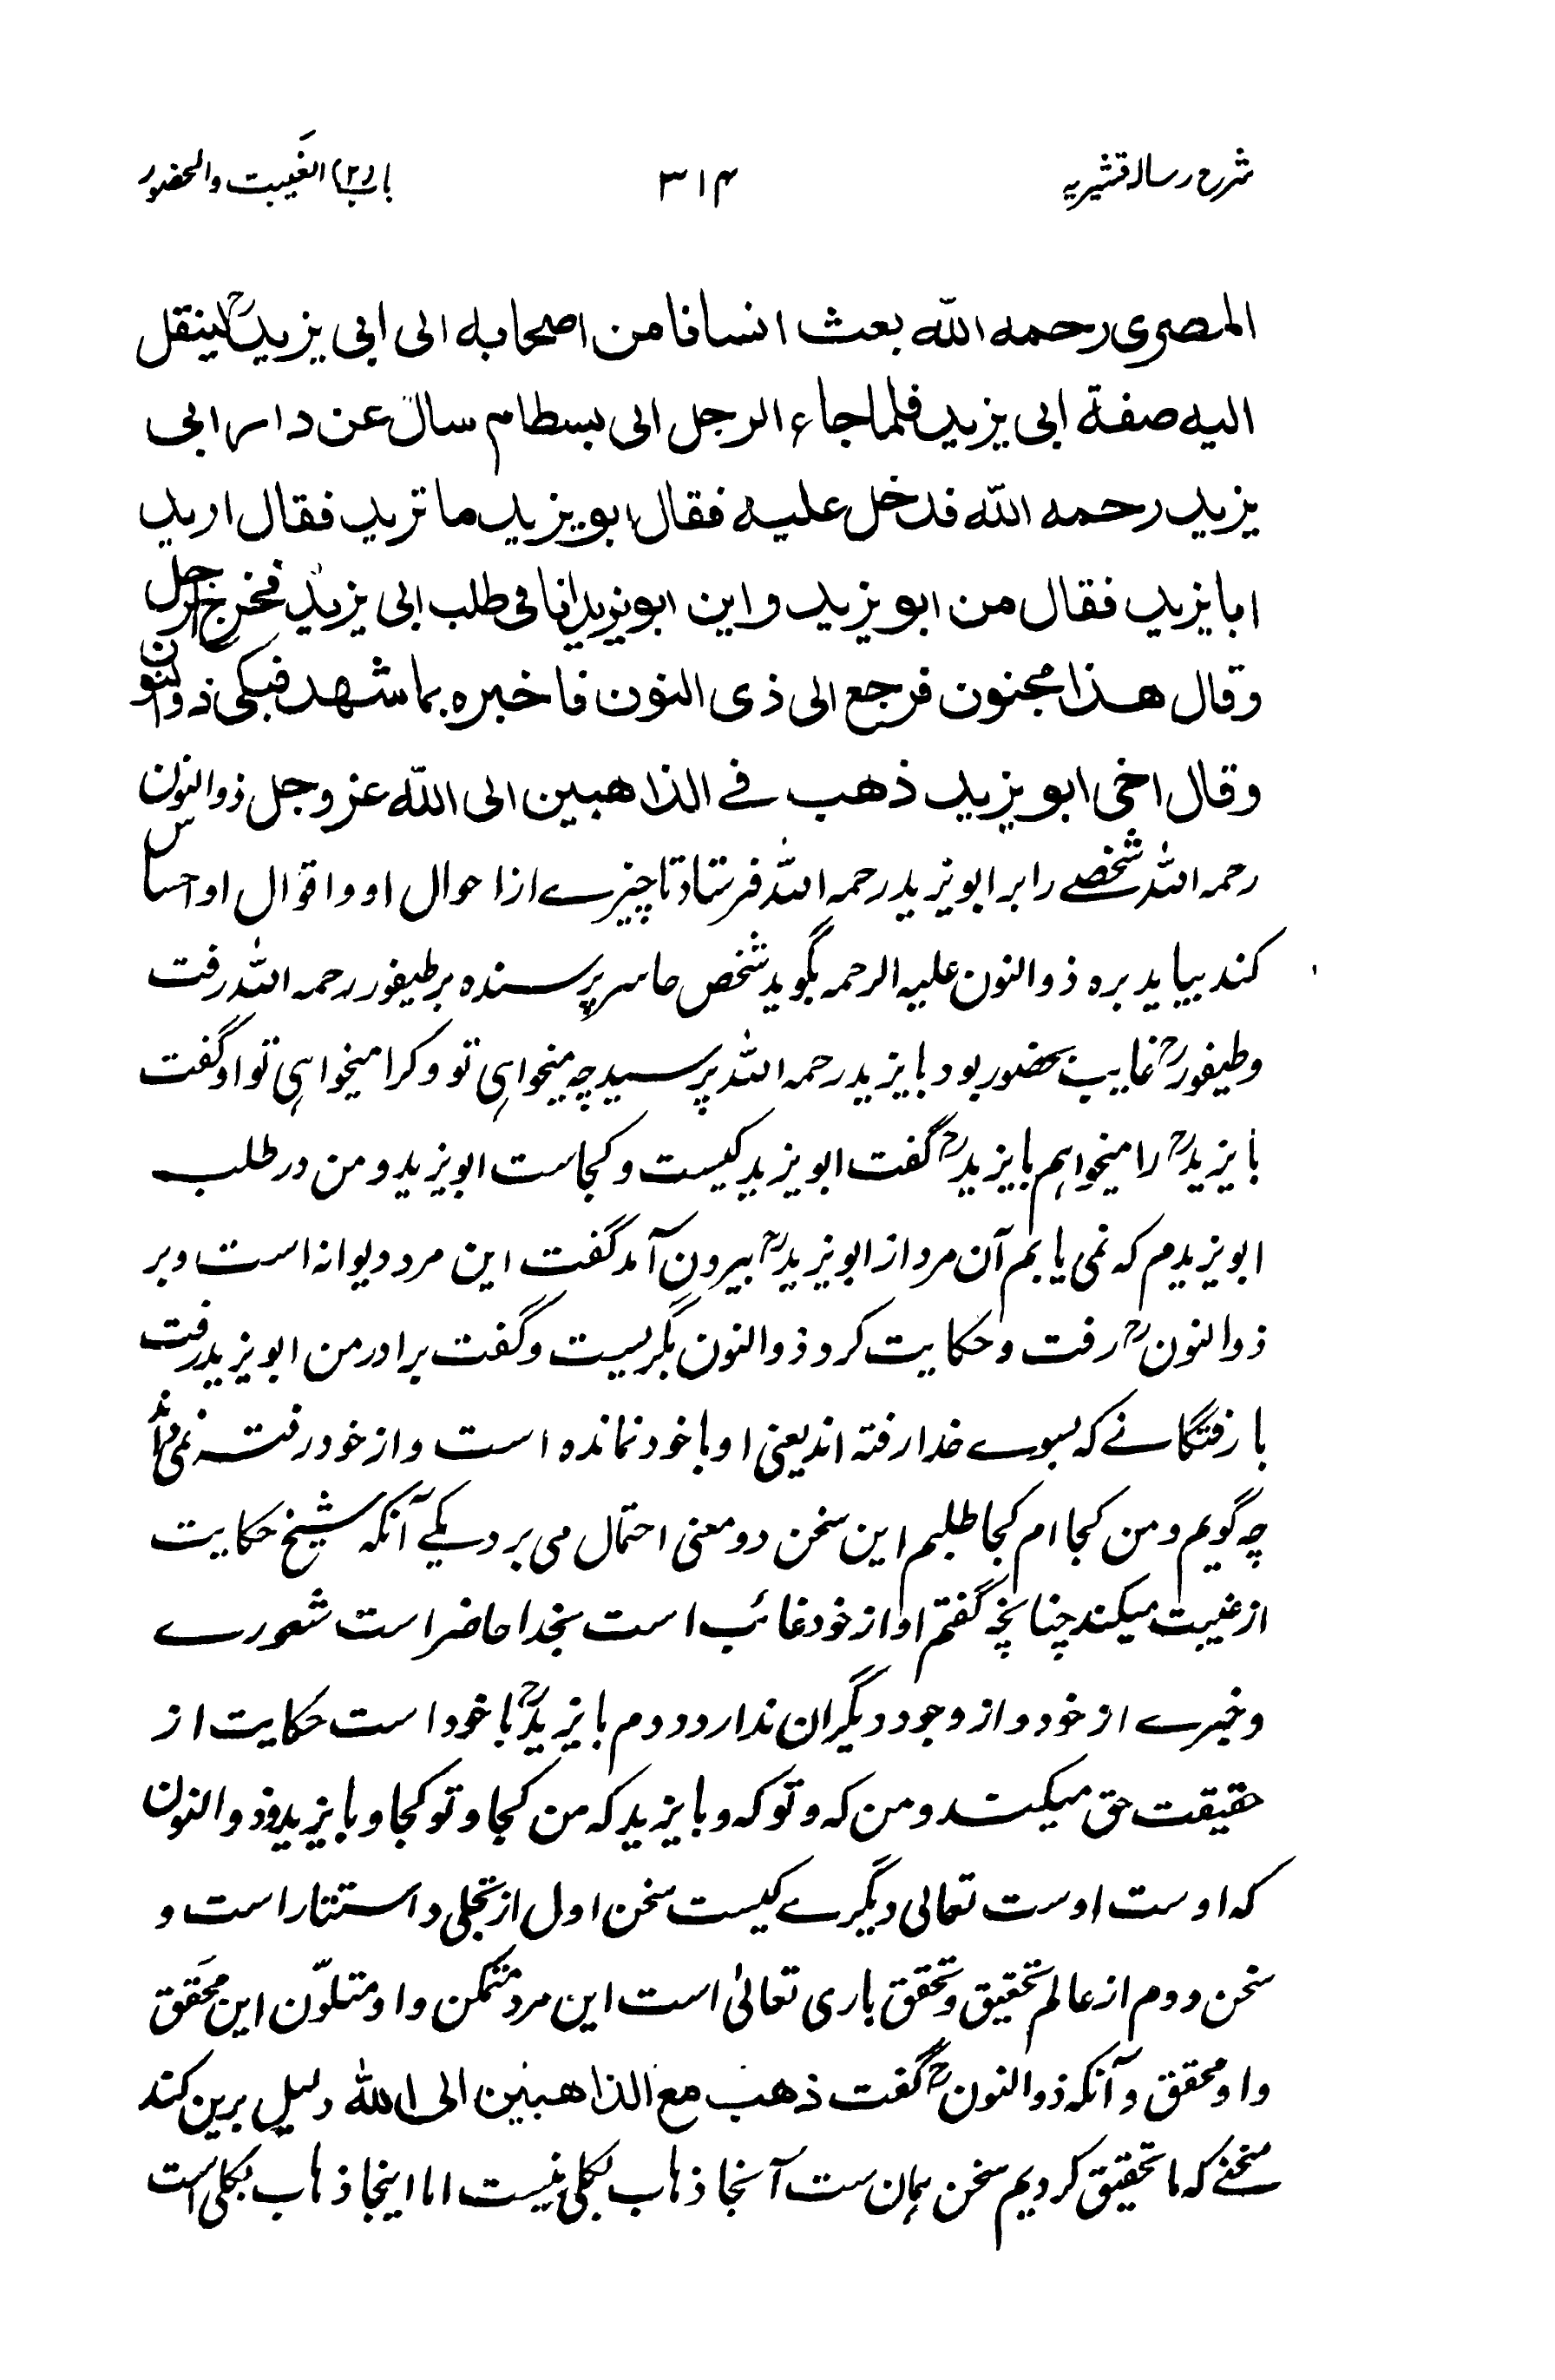 شرح رسالہ قشیریہ ۳۱۴ باب (۲) الغَیبت والحضور
المصری رحمه اللّه بعث انسانا من اصحابه الی ابی یزیدؒ لینقل
الیه صفة ابی یزید فلما جاء الرجل الی بسطام سال عن دار ابی
یزید رحمه اللّه فدخل علیه فقال ابو یزید ما ترید فقال ارید
ابا یزید فقال من ابو یزید و این ابو یزید انا فی طلب ابی یزید فخرج الرجل
وقال هذا مجنون فرجع الی ذی النون فاخبره بما شهد فبکی ذو النون
وقال اخی ابو یزید ذهب فے الذاهبین الی اللّه عز وجل ذوالنون
رحمہ اللہ شخصے را بر ابو یزید رحمہ اللہ فرستاد تا چیزے از احوال او و اقوال او احساس
کند بیاید برہ ذوالنون علیہ الرحمہ بگوید شخص حاسر پرسندہ بر طیفور رحمہ اللہ رفت
و طیفورؒ غایب حضور بود بایزید رحمہ اللہ پرسید چہ میخواہی تو و کرا میخواہی تو او گفت
بایزیدؒ را میخواہم بایزیدؒ گفت ابو یزید کیست و کجاست ابو یزید و من در طلب
ابو یزیدم کہ نمی یابم آن مرد از ابو یزیدؒ بیرون آمد گفت این مرد دیوانہ است و بر
ذوالنونؒ رفت و حکایت کرد ذوالنون بگریست و گفت برادر من ابو یزید رفت
با رفتگانے کہ بسوے خدا رفتہ اند یعنی او با خود نماندہ است و از خود رفتہ نمی داند
چہ گویم و من کجا ام کجا طلبم این سخن دو معنی احتمال می برد یکے آنکہ شیخ حکایت
از غیبت میکند چنانچہ گفتم او از خود غائب است بخدا حاضر است شعورے
و خبرے از خود و از وجود دیگران ندارد دوم بایزیدؒ با خود است حکایت از
حقیقت حق میکند و من کہ و تو کہ و بایزید کہ من کجا و تو کجا و بایزید و ذوالنون
کہ اوست اوست تعالی دیگرے کیست سخن اول از تجلی و استتار است و
سخن دوم از عالم تحقیق و تحقق باری تعالیٰ است این مرد متمکن و او متلوّن این محَقق
و او محقق و آنکہ ذوالنونؒ گفت ذهب مع الذاهبین الی اللّٰه دلیل برین کند
سخنے کہ ما تحقیق کردیم سخن ہمان ست آنجا ذہاب بکلی نیست اما اینجا ذہاب بکلی است